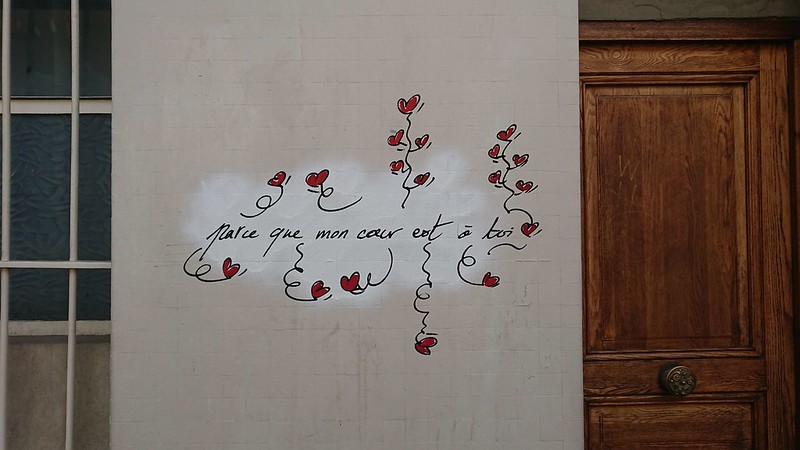 parce que mon cœur est à toi